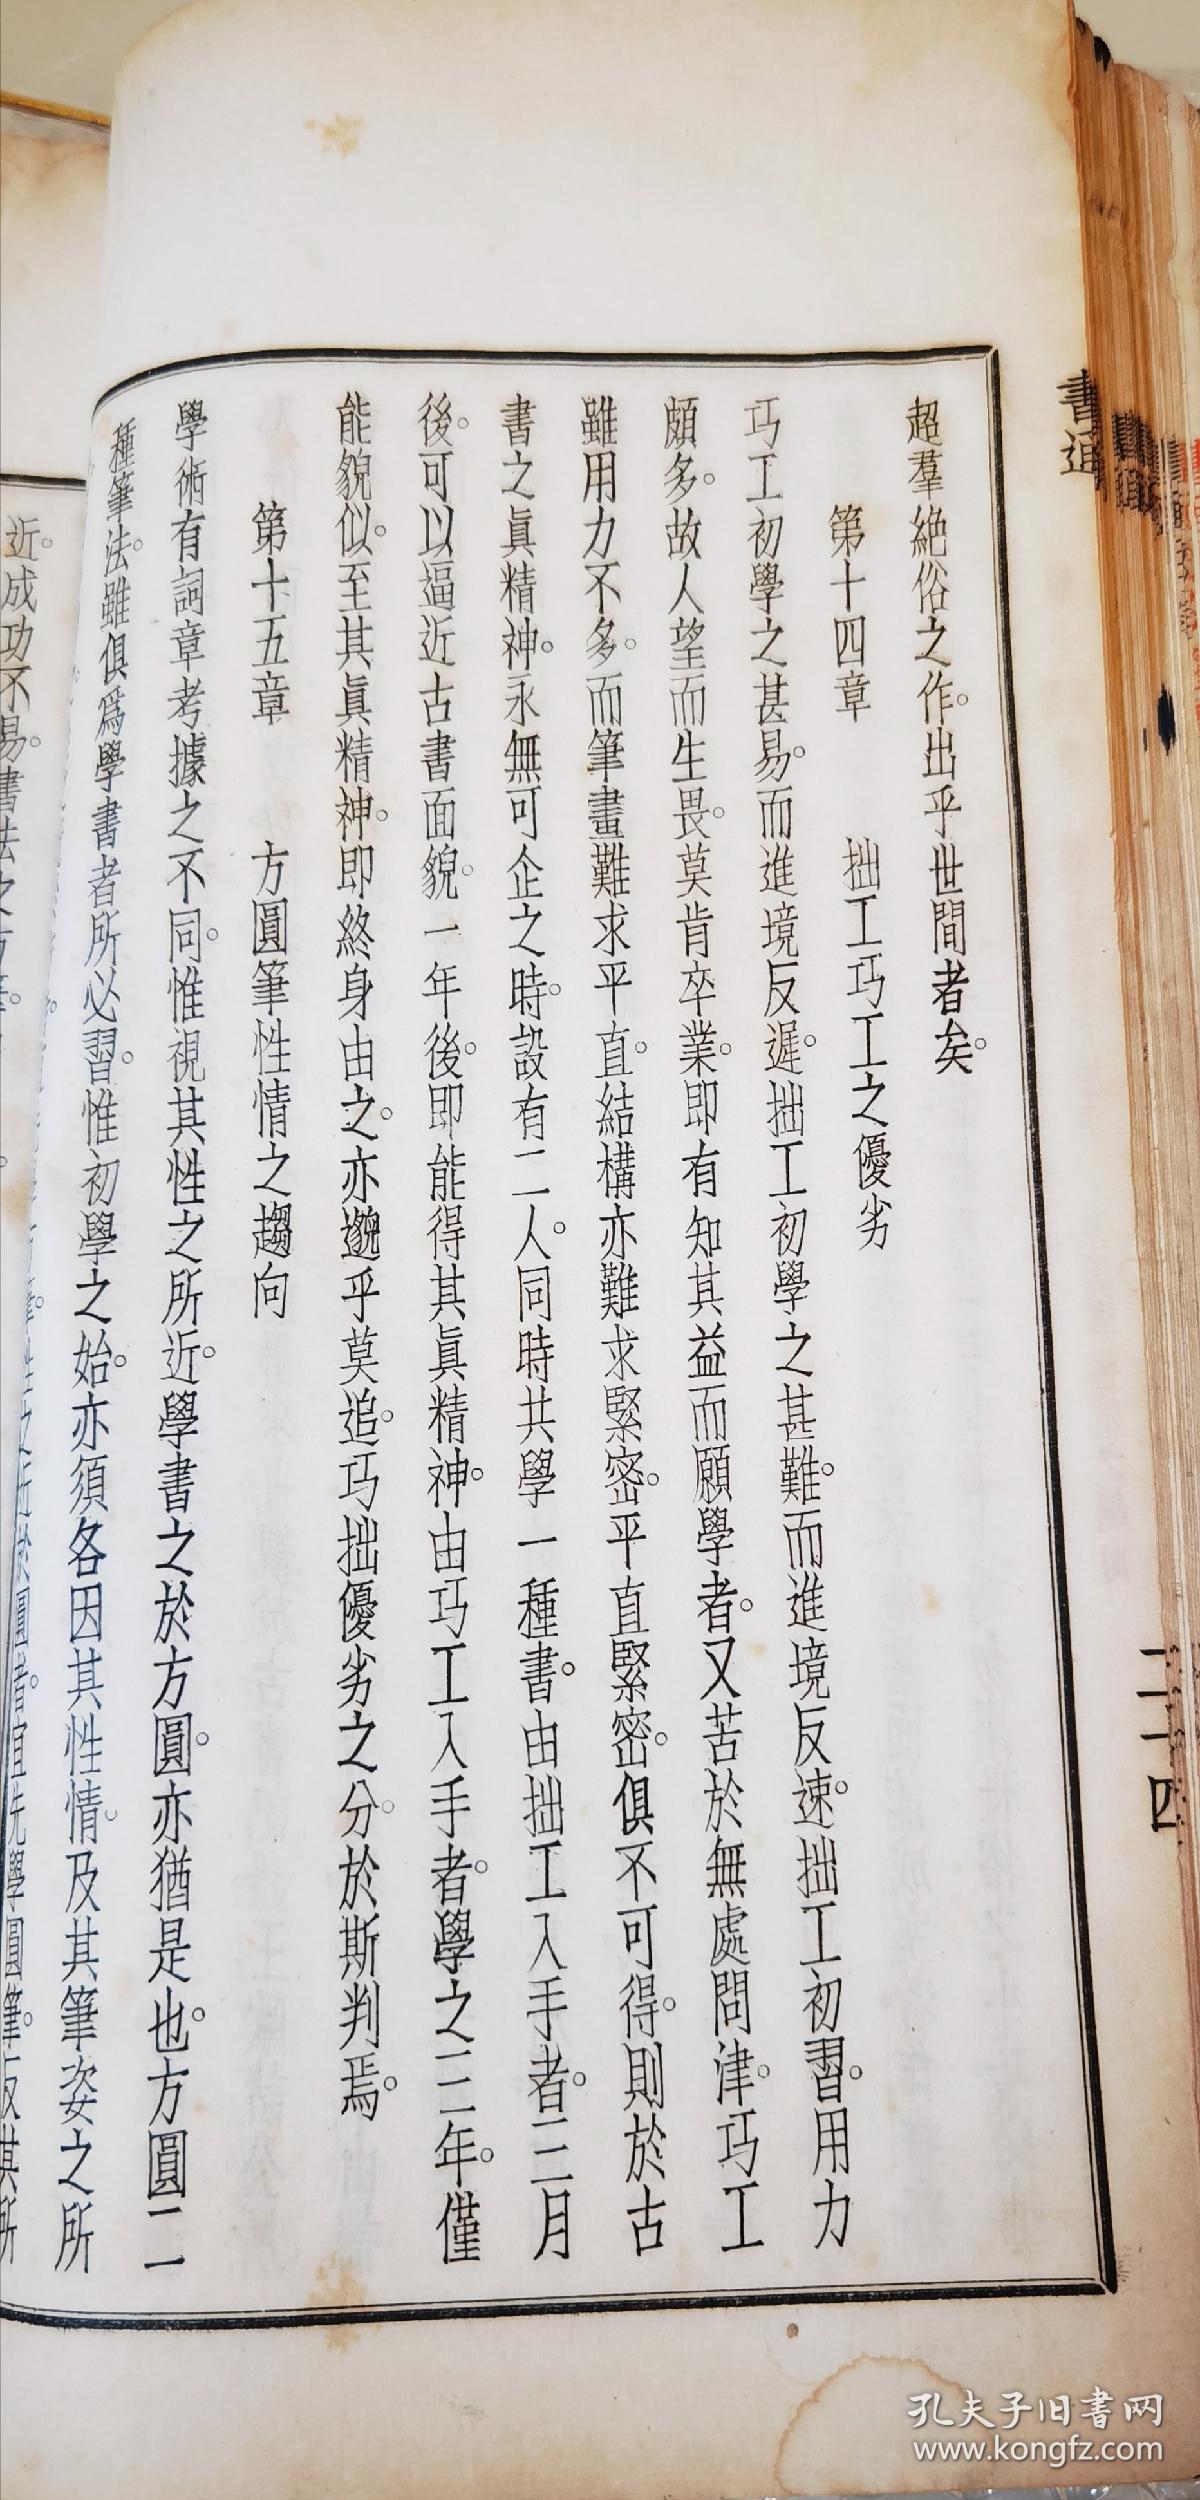 書通
二十四
超羣絶俗之作。出乎世間者矣。
第十四章　拙工巧工之優劣
巧工初學之甚易。而進境反遲。拙工初學之甚難。而進境反速。拙工初習。用力
頗多。故人望而生畏。莫肯卒業。即有知其益而願學者。又苦於無處問津。巧工
雖用力不多。而筆畫難求平直。結構亦難求緊密。平直緊密。俱不可得。則於古
書之眞精神。永無可企之時。設有二人。同時共學一種書。由拙工入手者。三月
後。可以逼近古書面貌。一年後。即能得其眞精神。由巧工入手者。學之三年。僅
能貌似。至其眞精神。即終身由之。亦邈乎莫追。巧拙優劣之分。於斯判焉。
第十五章　方圓筆性情之趨向
學術有詞章考據之不同。惟視其性之所近。學書之於方圓。亦猶是也。方圓二
種筆法。雖俱爲學書者所必習。惟初學之始。亦須各因其性情。及其筆姿之所
近。成功不易。書法之方
性之近於圓者。宜先學圓筆。反其所
孔夫子旧书网
www.kongfz.com